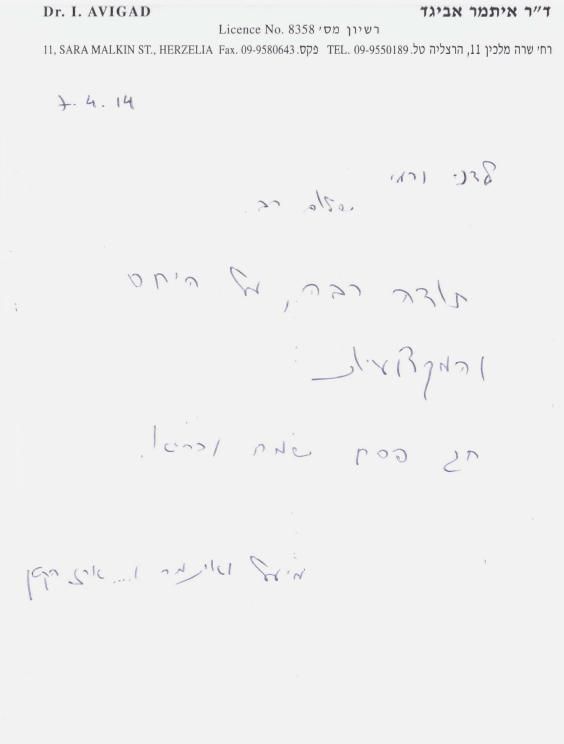 Dr. I. AVIGAD ד״ר איתמר אביגד
Licence No. 8358 רשיון מס׳
11, SARA MALKIN ST., HERZELIA Fax. 09-9580643 פקס. TEL. 09-9550189 רח׳ שרה מלכין 11, הרצליה טל.
7.4.14
לדני ורמי
שלום רב
תודה רבה, על היחס
והמקצועיות
חג פסח שמח ובריא!
ואיתמר ו....ארז הקטן